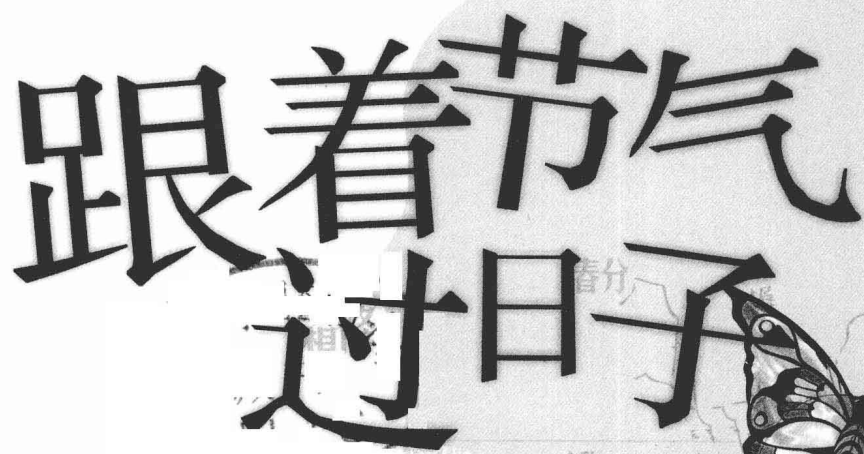 跟着节气
过日子
春分